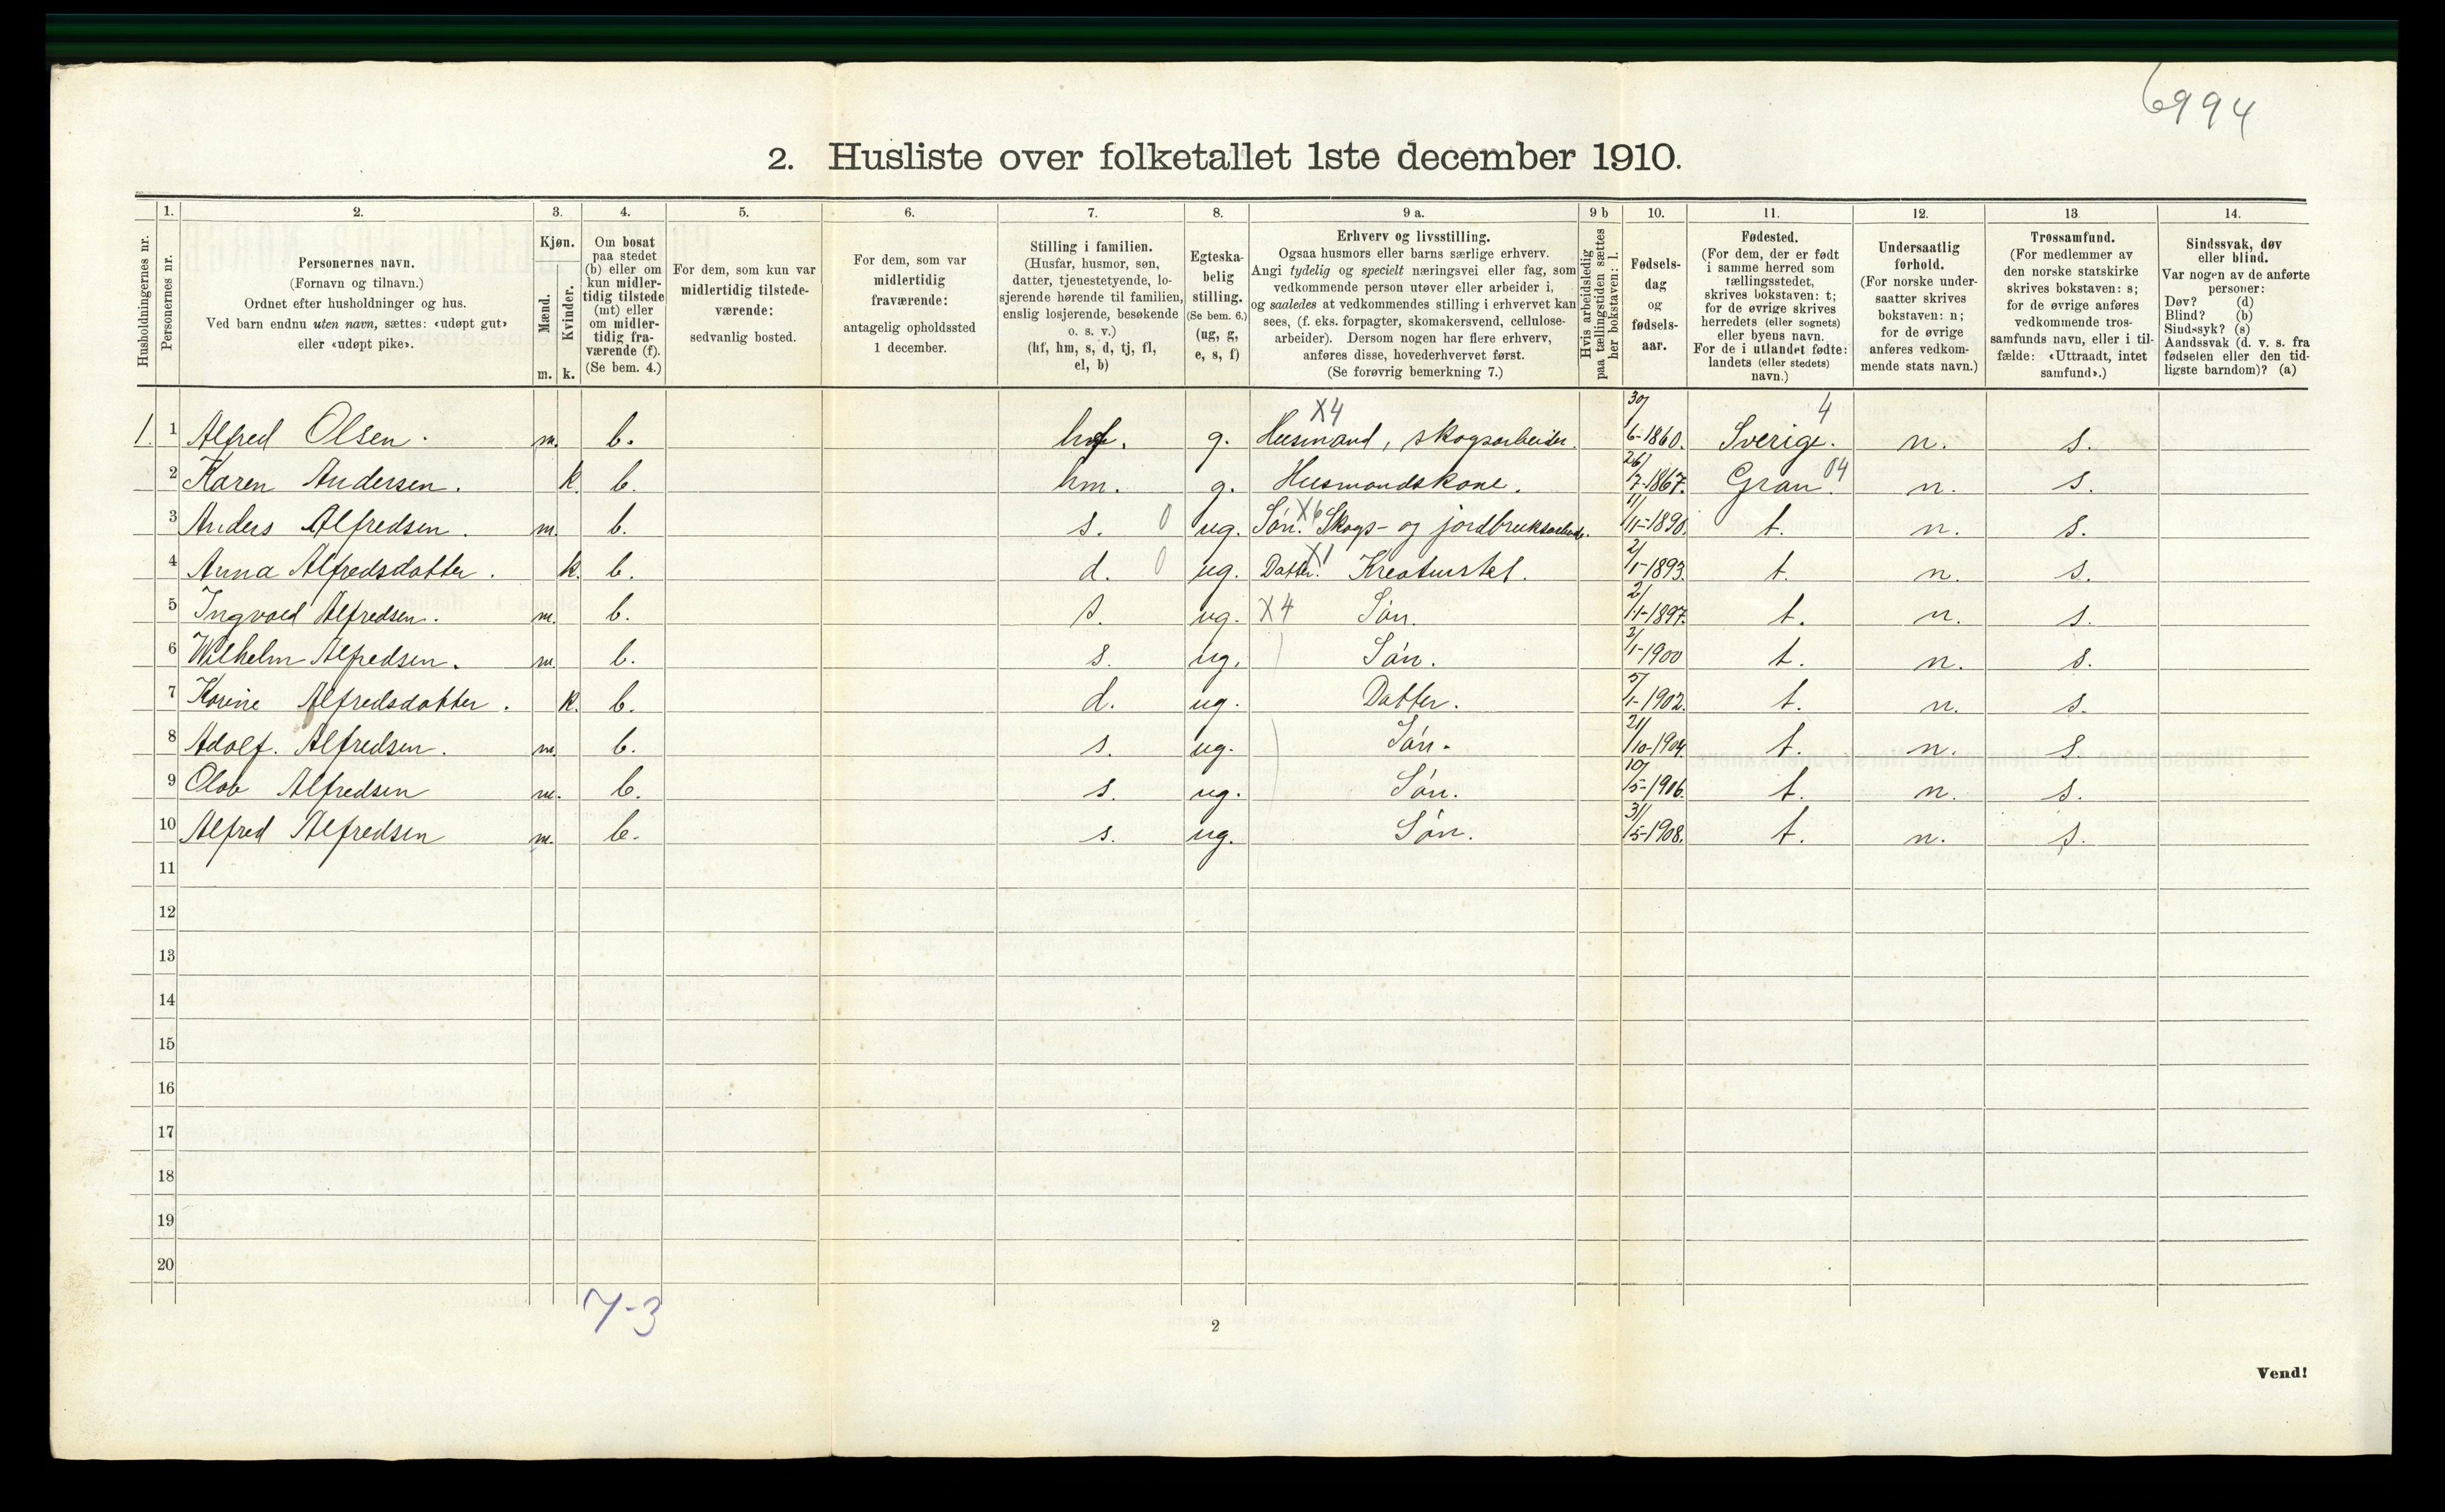 6994
2. Husliste over folketallet 1ste december 1910.
Husholdningernes nr.
1.
Personernes nr.
2.
Personernes navn.
(Fornavn og tilnavn.)
Ordnet efter husholdninger og hus.
Ved barn endnu uten navn, sættes: «udøpt gut»
eller «udøpt pike».
3.
Kjøn.
Mænd.
Kvinder.
m. k.
4.
Om bosat
paa stedet
(b) eller om
kun midler-
tidig tilstede
(mt) eller
om midler-
tidig fra-
værende (f).
(Se bem. 4.)
5.
For dem, som kun var
midlertidig tilstede-
værende:
sedvanlig bosted.
6.
For dem, som var
midlertidig
fraværende:
antagelig opholdssted
1 december.
7.
Stilling i familien.
(Husfar, husmor, søn,
datter, tjenestetyende, lo-
sjerende hørende til familien,
enslig losjerende, besøkende
o. s. v.)
(hf, hm, s, d, tj, fl,
el, b)
8.
Egteska-
belig
stilling.
(Se bem. 6.)
(ug, g,
e, s, f)
9 a.
Erhverv og livsstilling.
Ogsaa husmors eller barns særlige erhverv.
Angi tydelig og specielt næringsvei eller fag, som
vedkommende person utøver eller arbeider i,
og saaledes at vedkommendes stilling i erhvervet kan
sees, (f. eks. forpagter, skomakersvend, cellulose-
arbeider). Dersom nogen har flere erhverv,
anføres disse, hovederhvervet først.
(Se forøvrig bemerkning 7.)
9 b
Hvis arbeidsledig
paa tællingstiden sættes
her bokstaven: l.
10.
Fødsels-
dag
og
fødsels-
aar.
11.
Fødested.
(For dem, der er født
i samme herred som
tællingsstedet,
skrives bokstaven: t;
for de øvrige skrives
herredets (eller sognets)
eller byens navn.
For de i utlandet fødte:
landets (eller stedets)
navn.)
12.
Undersaatlig
forhold.
(For norske under-
saatter skrives
bokstaven: n;
for de øvrige
anføres vedkom-
mende stats navn.)
13.
Trossamfund.
(For medlemmer av
den norske statskirke
skrives bokstaven: s;
for de øvrige anføres
vedkommende tros-
samfunds navn, eller i til-
fælde: «Uttraadt, intet
samfund».)
14.
Sindssvak, døv
eller blind.
Var nogen av de anførte
personer:
Døv? (d)
Blind? (b)
Sindssyk? (s)
Aandssvak (d. v. s. fra
fødselen eller den tid-
ligste barndom)? (a)
1. 1 Alfred Olsen. m. b. hf. g. X4 Husmand, skogsarbeider. 30/6-1860. Sverige. 4 n. s.
2 Karen Andersen. k. b. hm. g. Husmandskone. 26/7-1867. Gran. 04 n. s.
3 Anders Alfredsen. m. b. s. 0 ug. Søn. X6 Skogs- og jordbruksarbeider. 11/11-1890. t. n. s.
4 Anna Alfredsdatter. k. b. d. 0 ug. Datter. X1 Kreaturstel. 2/1-1893. t. n. s.
5 Ingvald Alfredsen. m. b. s. ug. X4 Søn. 2/11-1897. t. n. s.
6 Wilhelm Alfredsen. m. b. s. ug. Søn. 2/1-1900 t. n. s.
7 Karine Alfredsdatter. k. b. d. ug. Datter. 5/1-1902. t. n. s.
8 Adolf. Alfredsen. m. b. s. ug. Søn. 21/10-1904. t. n. s
9 Olav Alfredsen m. b. s. ug. Søn. 10/5-1906. t. n. s.
10 Alfred Alfredsen m. b. s. ug. Søn. 31/5-1908. t. n. s.
11
12
13
14
15
16
17
18
19
20
7-3
2
Vend!